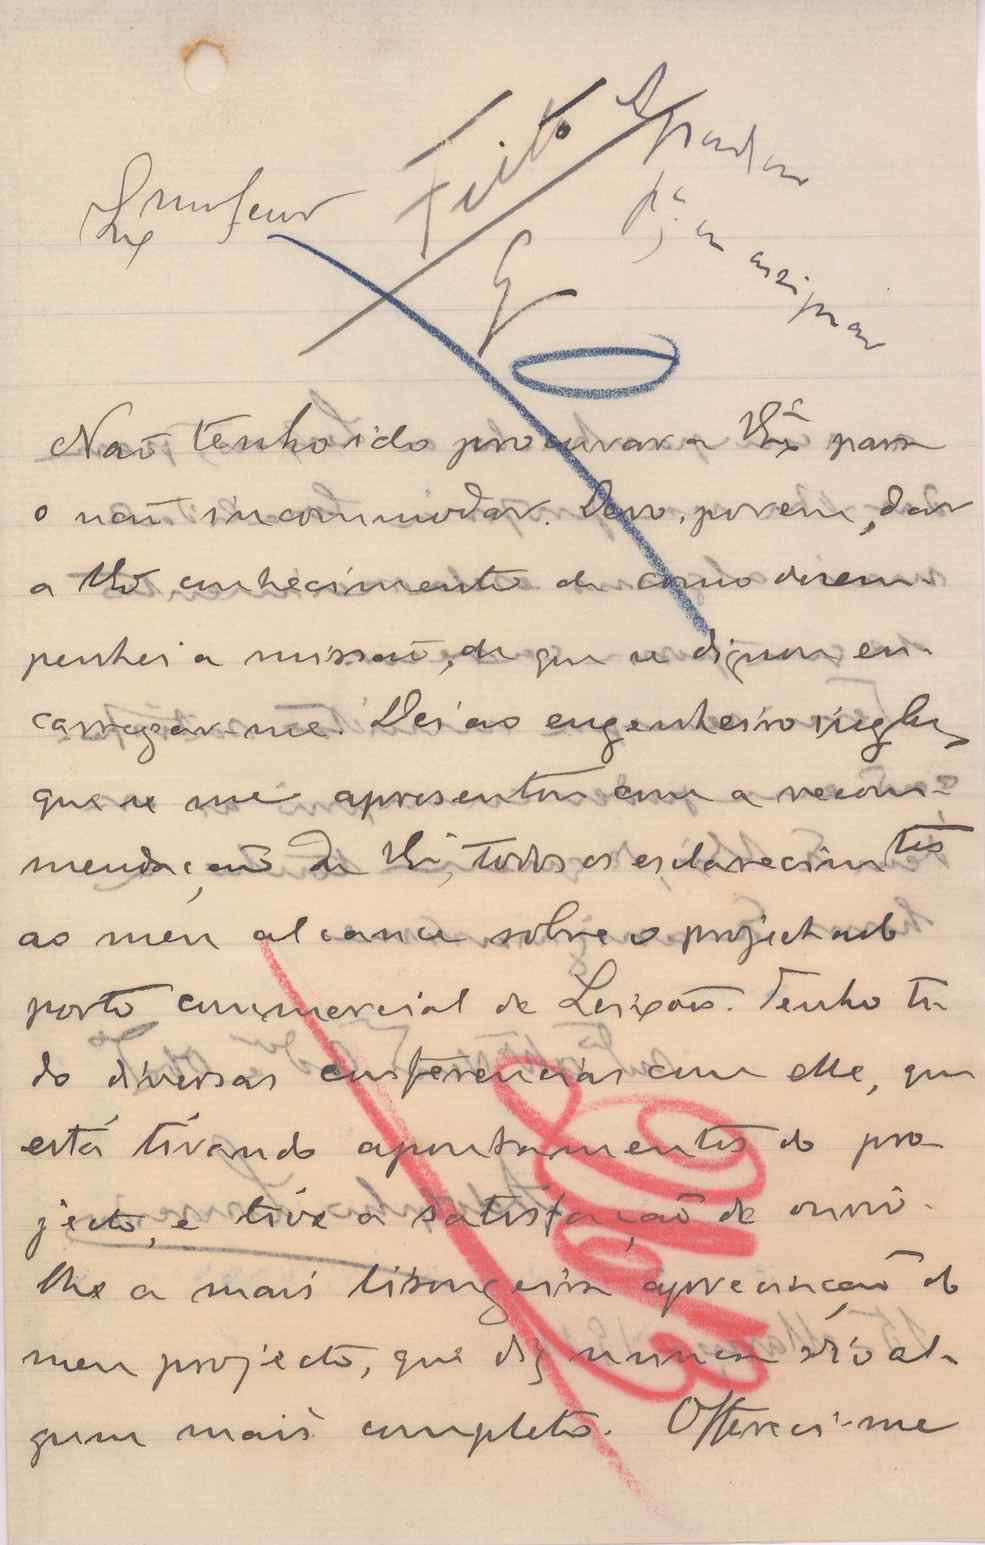 Feito
G
Agradecer
pª eu assignar
Exmo Senr
Não tenho ido procurar a V. Exª para
o não incommodar. Devo, porem, dar
a V. Exª conhecimento de como desem-
penhei a missão, de que se dignou en-
carregar-me. Dei ao engenheiro inglez,
que se me apresentou com a recom-
mendação de V. Exª, todos os esclarecimtos
ao meu alcance sobre o projectado
porto commercial de Leixões. Tenho ti-
do diversas conferencias com elle, que
está tirando apontamentos do pro-
jecto, e tive a satisfação de ouvir-
lhe a mais lisongeira apreciação do
meu projecto, que diz nunca vio al-
gum mais completo. Offereci-me